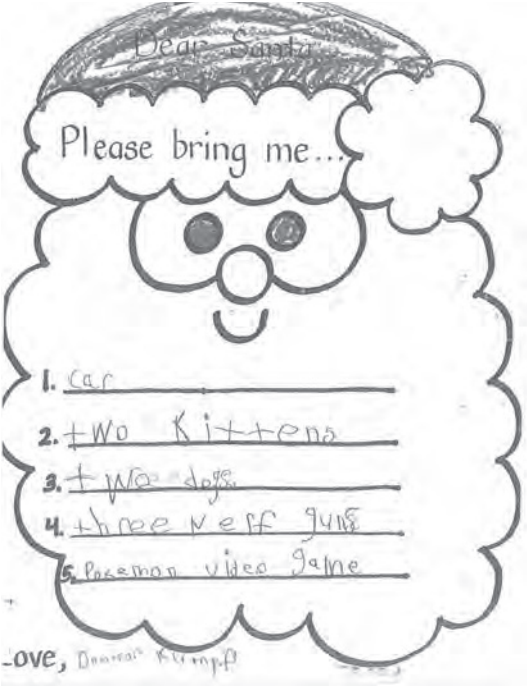 Dear Santa
Please bring me...
1. car
2. two kittens
3. two dogs
4. three Nerf guns
5. Pokemon video game
Love,